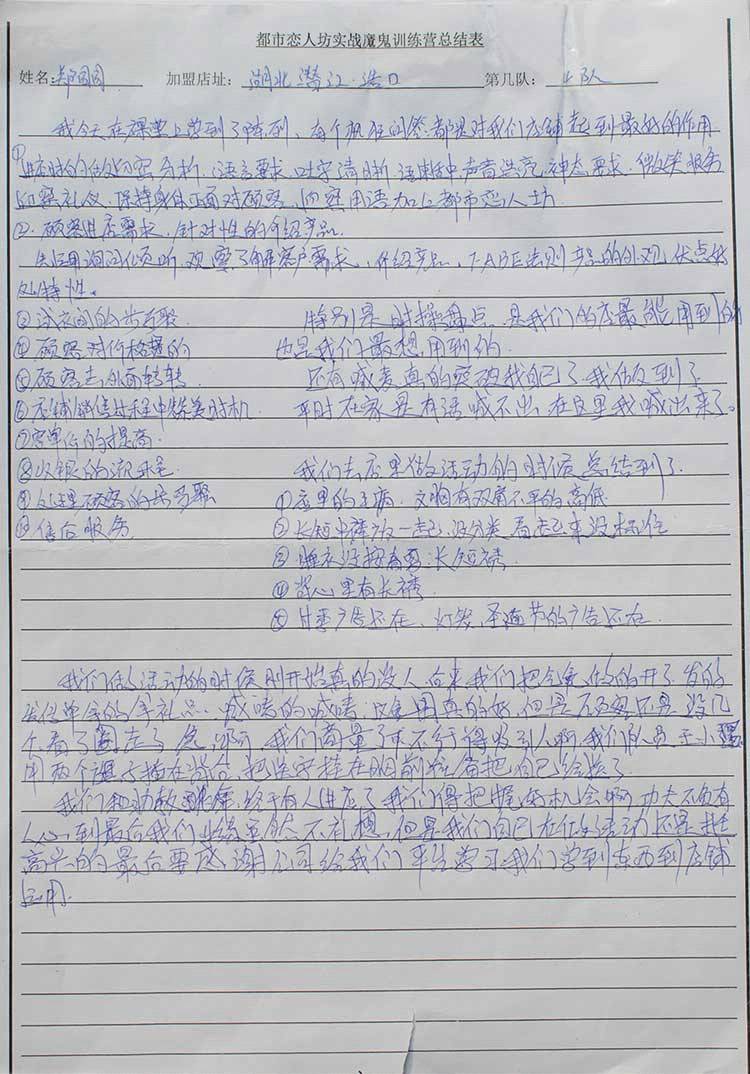 都市恋人坊实战魔鬼训练营总结表
姓名: 郑园园 加盟店址: 湖北潜江浩口 第几队: 队
我今天在课堂上学到了陈列,每个 问答都是对我们店铺起到最好的作用
① 进店时的 分析(语言要求,吐字清晰,语 中声音洪亮,神态要求,微笑服务
迎宾礼仪,保持身体正面对顾客,迎宾用语加上都市恋人坊
②.顾客进店需求,针对性的介绍产品.
先运用询问倾听,观察了解客户需求,介绍产品,FABE法则产品的外观,优点好
处特性。
③试衣间的步骤 特别是时操盘点,是我们的店最能用到的
④顾客对价格 的 也是我们最想用到的
⑤顾客去外面转转 还有喊麦真的突破我自己了我做到了
⑥店铺销售过程中赞美时机 平时在家是有话喊不出在这里我喊出来了。
⑦客单价的提高
⑧收银的流 我们去店里做活动的时候总结到了
⑨处理顾客的 步骤 ①店里的毛病.文胸有双肩不平的高低
⑩售后服务 ②长短 裤放一起,没分类看起来没档位
③睡衣没按 长短袖
④背心里有长袖
⑤ 季广告还在,灯笼,圣诞节的广告还在
我们做活动的时候刚开始真的没人,后来我们把 的 开了,发的
发传单拿的拿礼品.喊唛的喊唛, 真的好,但是顾客还是没几
个看了 走了, 我们商量了 不行得吸引人啊我们队员于小
用两个 子插在背后,把 挂在胸前 备把自己给
我们和 终于有人进店了我们得把握好机会啊功夫不负有
人心,到最后我们业绩虽然不理想,但是我们自己在做活动还是
高兴的最后要感谢公司给我们 学习我们学到东西到店铺
运用.